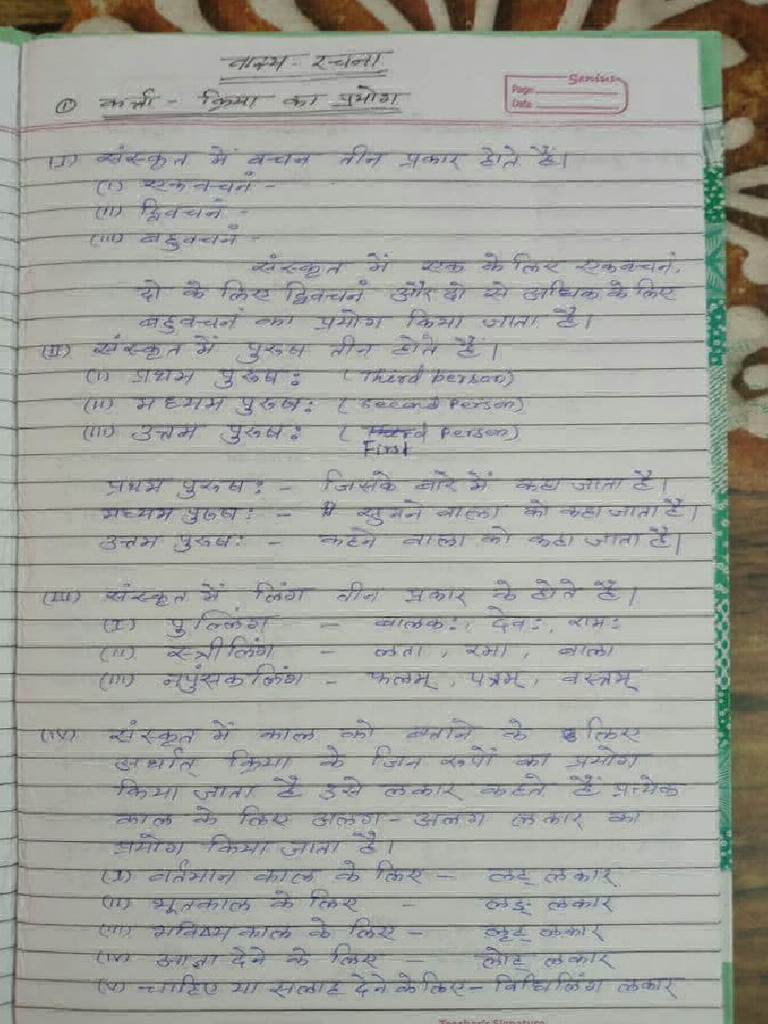 वाक्य - रचना
Sundaram
Page:
Date:
① कर्त्ता - क्रिया का प्रयोग
(I) संस्कृत में वचन तीन प्रकार होते हैं।
(i) एकवचनं -
(ii) द्विवचनं -
(iii) बहुवचनं -
संस्कृत में एक के लिए एकवचनं,
दो के लिए द्विवचनं और दो से अधिक के लिए
बहुवचनं का प्रयोग किया जाता है।
(II) संस्कृत में पुरुष तीन होते हैं।
(i) प्रथम पुरुषः (Third person)
(ii) मध्यम पुरुषः (Second Person)
(iii) उत्तम पुरुषः ( Person)
First
प्रथम पुरुषः - जिसके बारे में कहा जाता है।
मध्यम पुरुषः - सुनने वाला को कहा जाता है।
उत्तम पुरुषः - कहने वाला को कहा जाता है।
(III) संस्कृत में लिंग तीन प्रकार के होते हैं।
(I) पुल्लिंग - बालकः, देवः, रामः
(ii) स्त्रीलिंग - लता, रमा, बाला
(iii) नपुंसकलिंग - फलम्, पत्रम्, वस्त्रम्
(IV) संस्कृत में काल को बताने के लिए
अर्थात् क्रिया के जिन रूपों का प्रयोग
किया जाता है उसे लकार कहते हैं प्रत्येक
काल के लिए अलग - अलग लकार का
प्रयोग किया जाता है।
(I) वर्तमान काल के लिए - लट् लकार
(ii) भूतकाल के लिए - लङ् लकार
(iii) भविष्य काल के लिए - लृट् लकार
(iv) आज्ञा देने के लिए - लोट् लकार
(v) चाहिए या सलाह देने के लिए - विधिलिंग लकार
Teacher's Signature